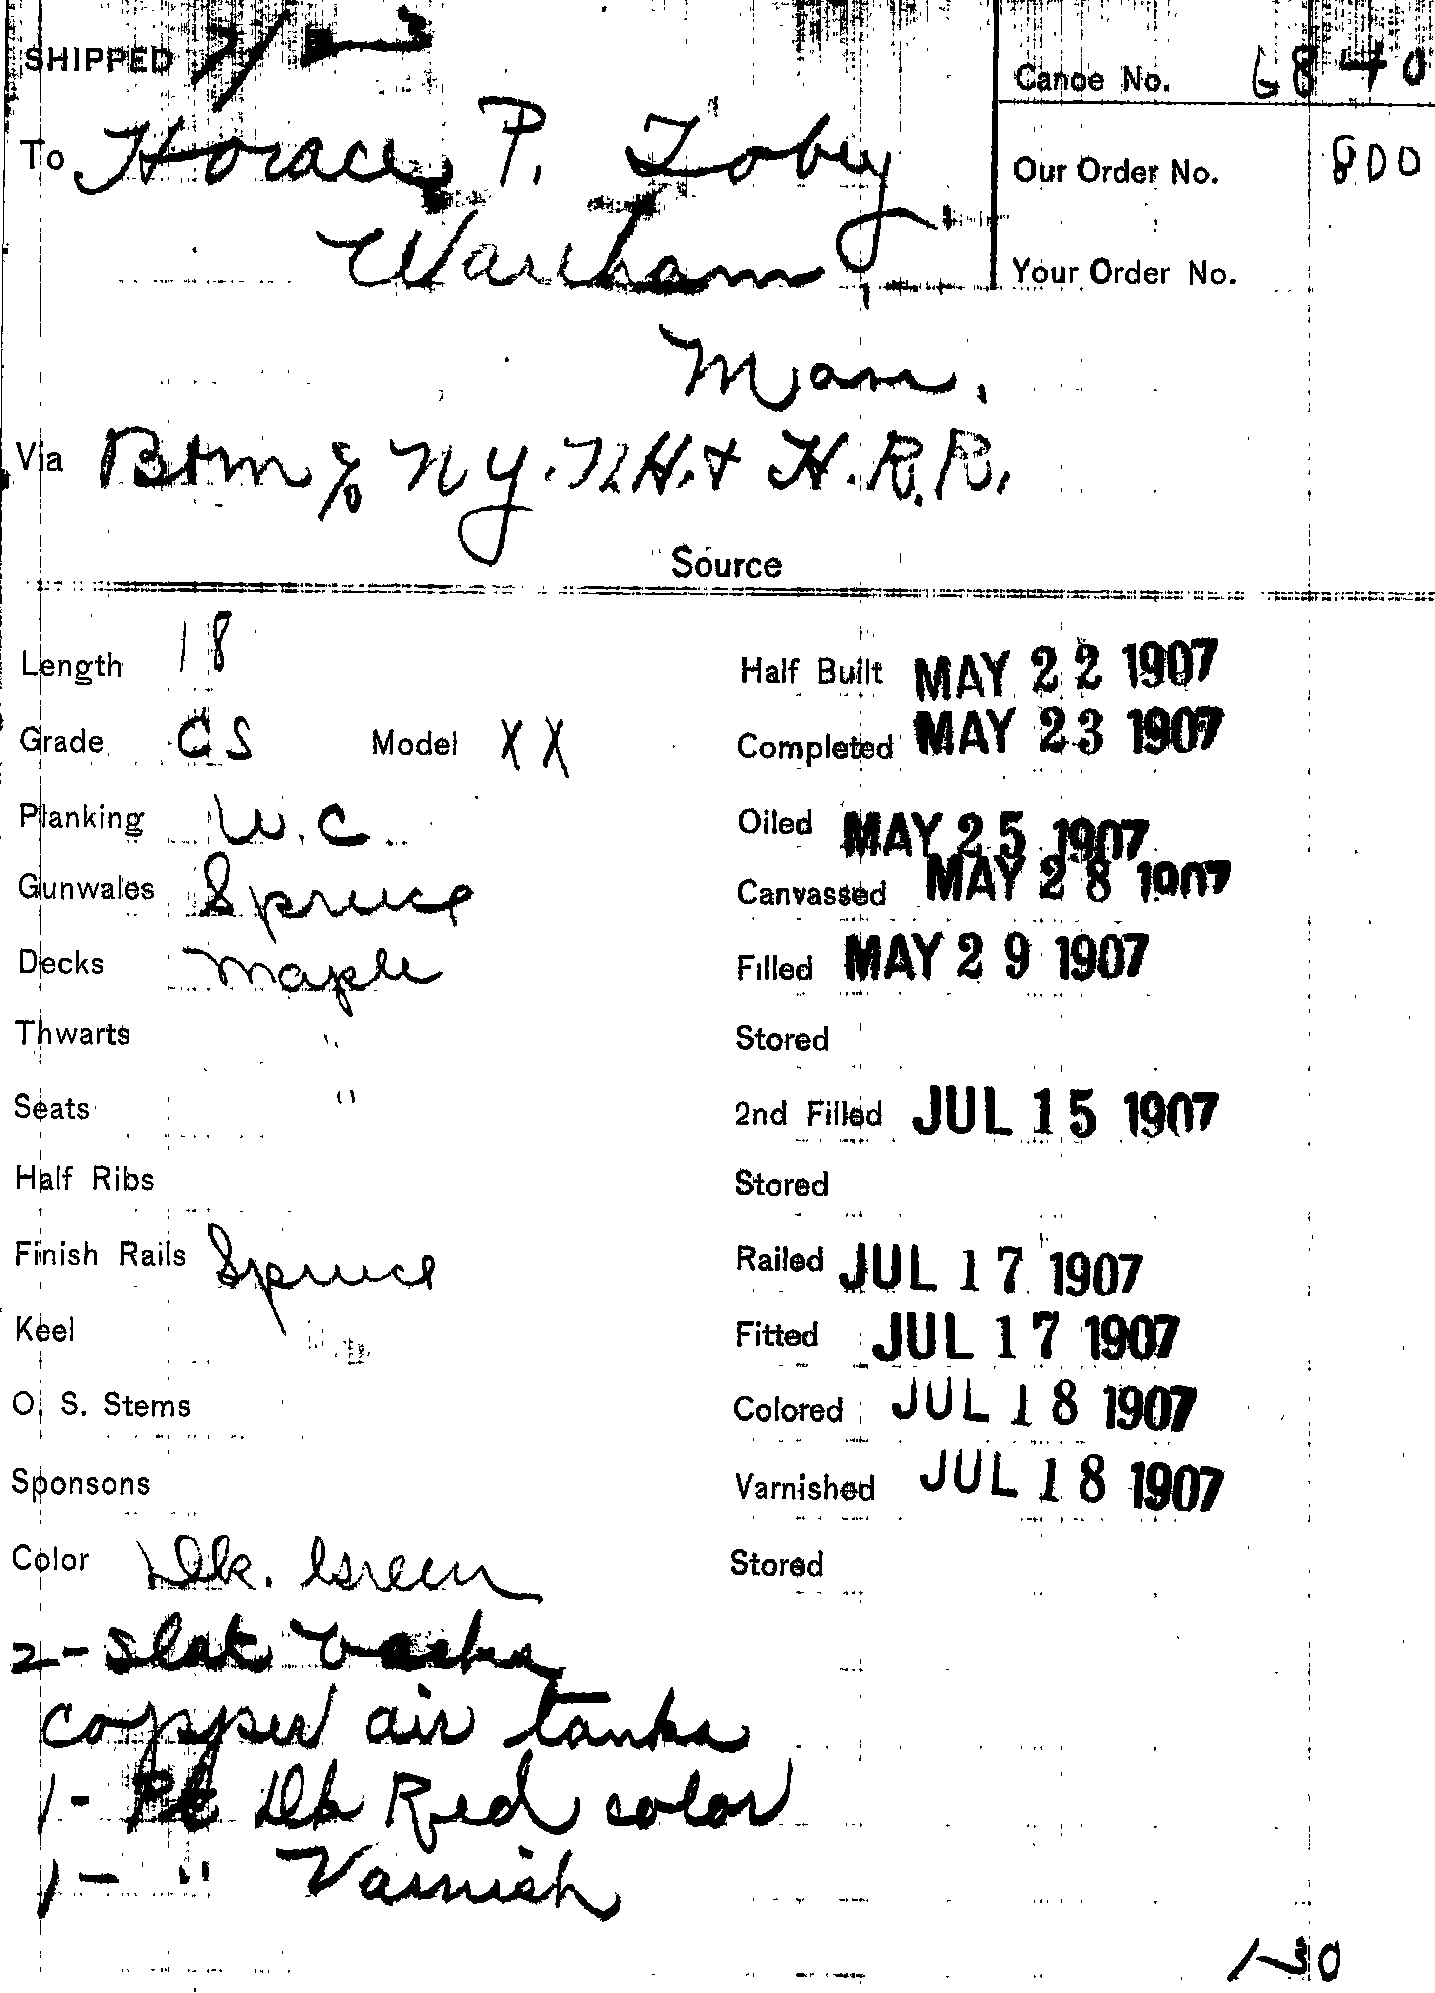 SHIPPED
Canoe No. 6840
To Horace P. Tobey
Our Order No. 800
Wareham,
Your Order No.
Mass.
Via B+M % N.Y. N.H. + H. R.R.
Source
Length 18 Half Built MAY 22 1907
Grade CS Model XX Completed MAY 23 1907
Planking W.C. Oiled MAY 25 1907
Gunwales Spruce Canvassed MAY 28 1907
Decks Maple Filled MAY 29 1907
Thwarts " Stored
Seats " 2nd Filled JUL 15 1907
Half Ribs Stored
Finish Rails Spruce Railed JUL 17 1907
Keel Fitted JUL 17 1907
O. S. Stems Colored JUL 18 1907
Sponsons Varnished JUL 18 1907
Color Dk. Green Stored
2 - Slat backs
copper air tanks
1 - Pt Dk Red color
1 - " Varnish